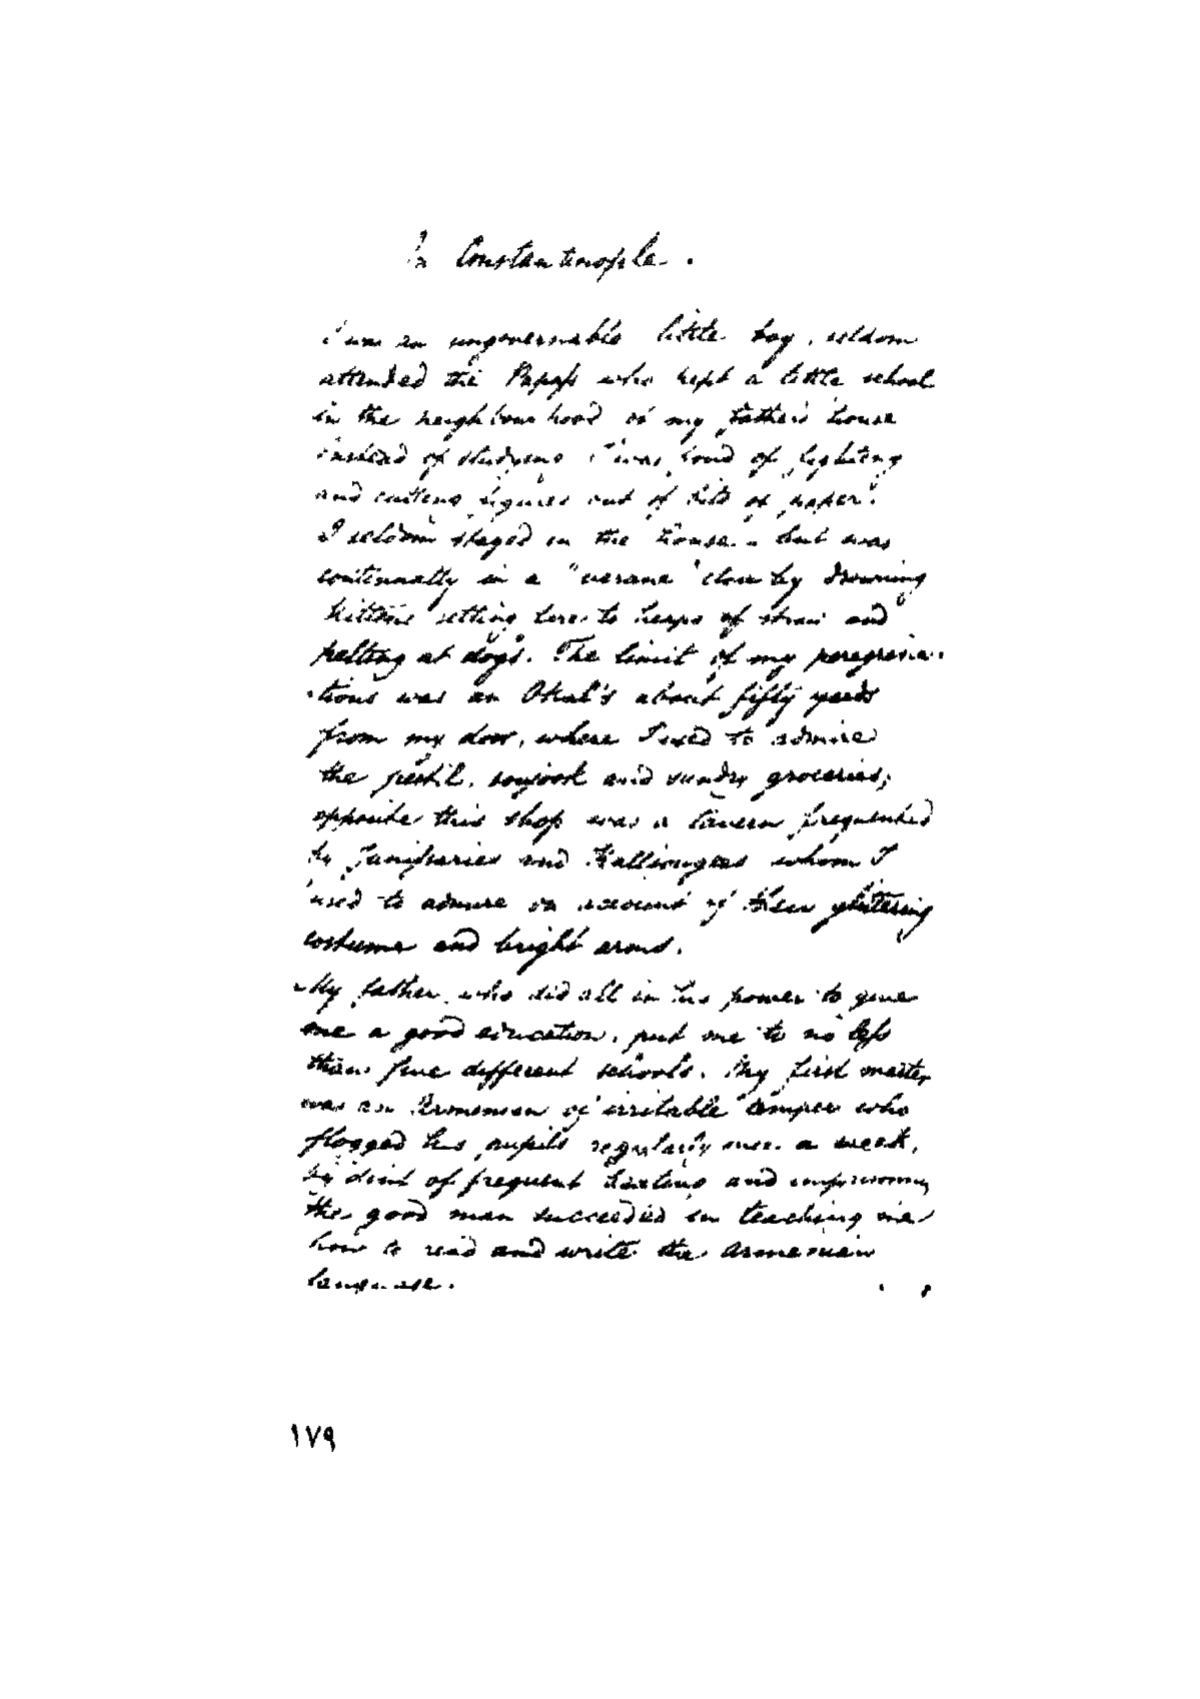 In Constantinople.
I was an ungovernable little boy, seldom
attended the Papass who kept a little school
in the neighbourhood of my father's house
instead of studying I was fond of fighting
and cutting figures out of bits of paper.
I seldom stayed in the house - but was
continually in a "verane" close by drowning
kittens setting fire to heaps of straw and
pelting at dogs. The limit of my peregrina-
-tions was an Okal's about fifty yards
from my door, where I used to admire
the pestil, soujook and sundry groceries;
opposite this shop was a tavern frequented
by Janissaries and Kallioungees whom I
used to admire on account of their glittering
costume and bright arms.
My father who did all in his power to give
me a good education, put me to no less
than five different schools. My first master
was an Armenian of irritable temper who
flogged his pupils regularly once a week,
by dint of frequent beating and imprisoning
the good man succeeded in teaching me
how to read and write the Armenian
language.
١٧٩